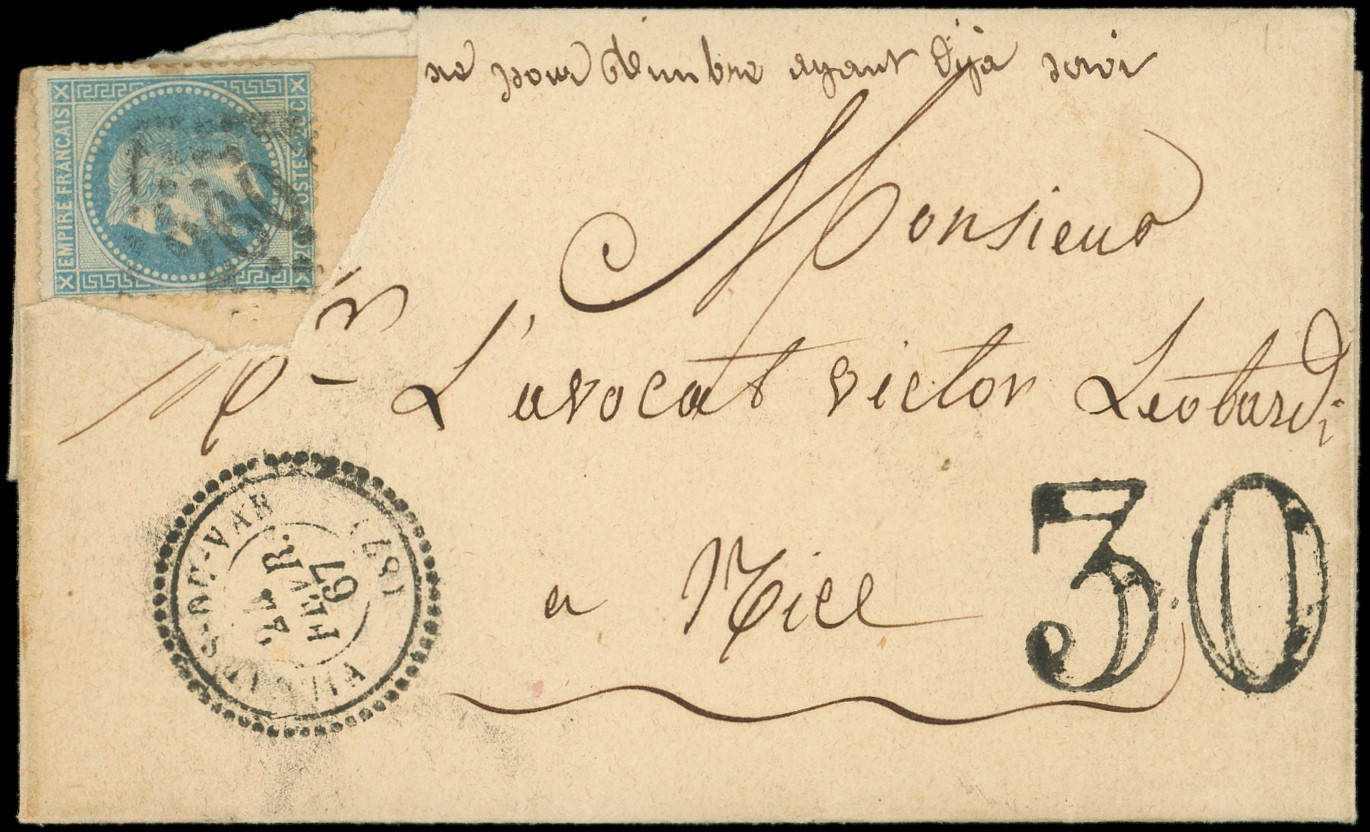 ne pour timbre ayant déja servi
EMPIRE FRANCAIS
POSTES 20 C
Monsieur
Mr L'avocat victor Leotardi
a Nice
30
PUGET-S-DE-VAR (87)
24
FEVR.
67